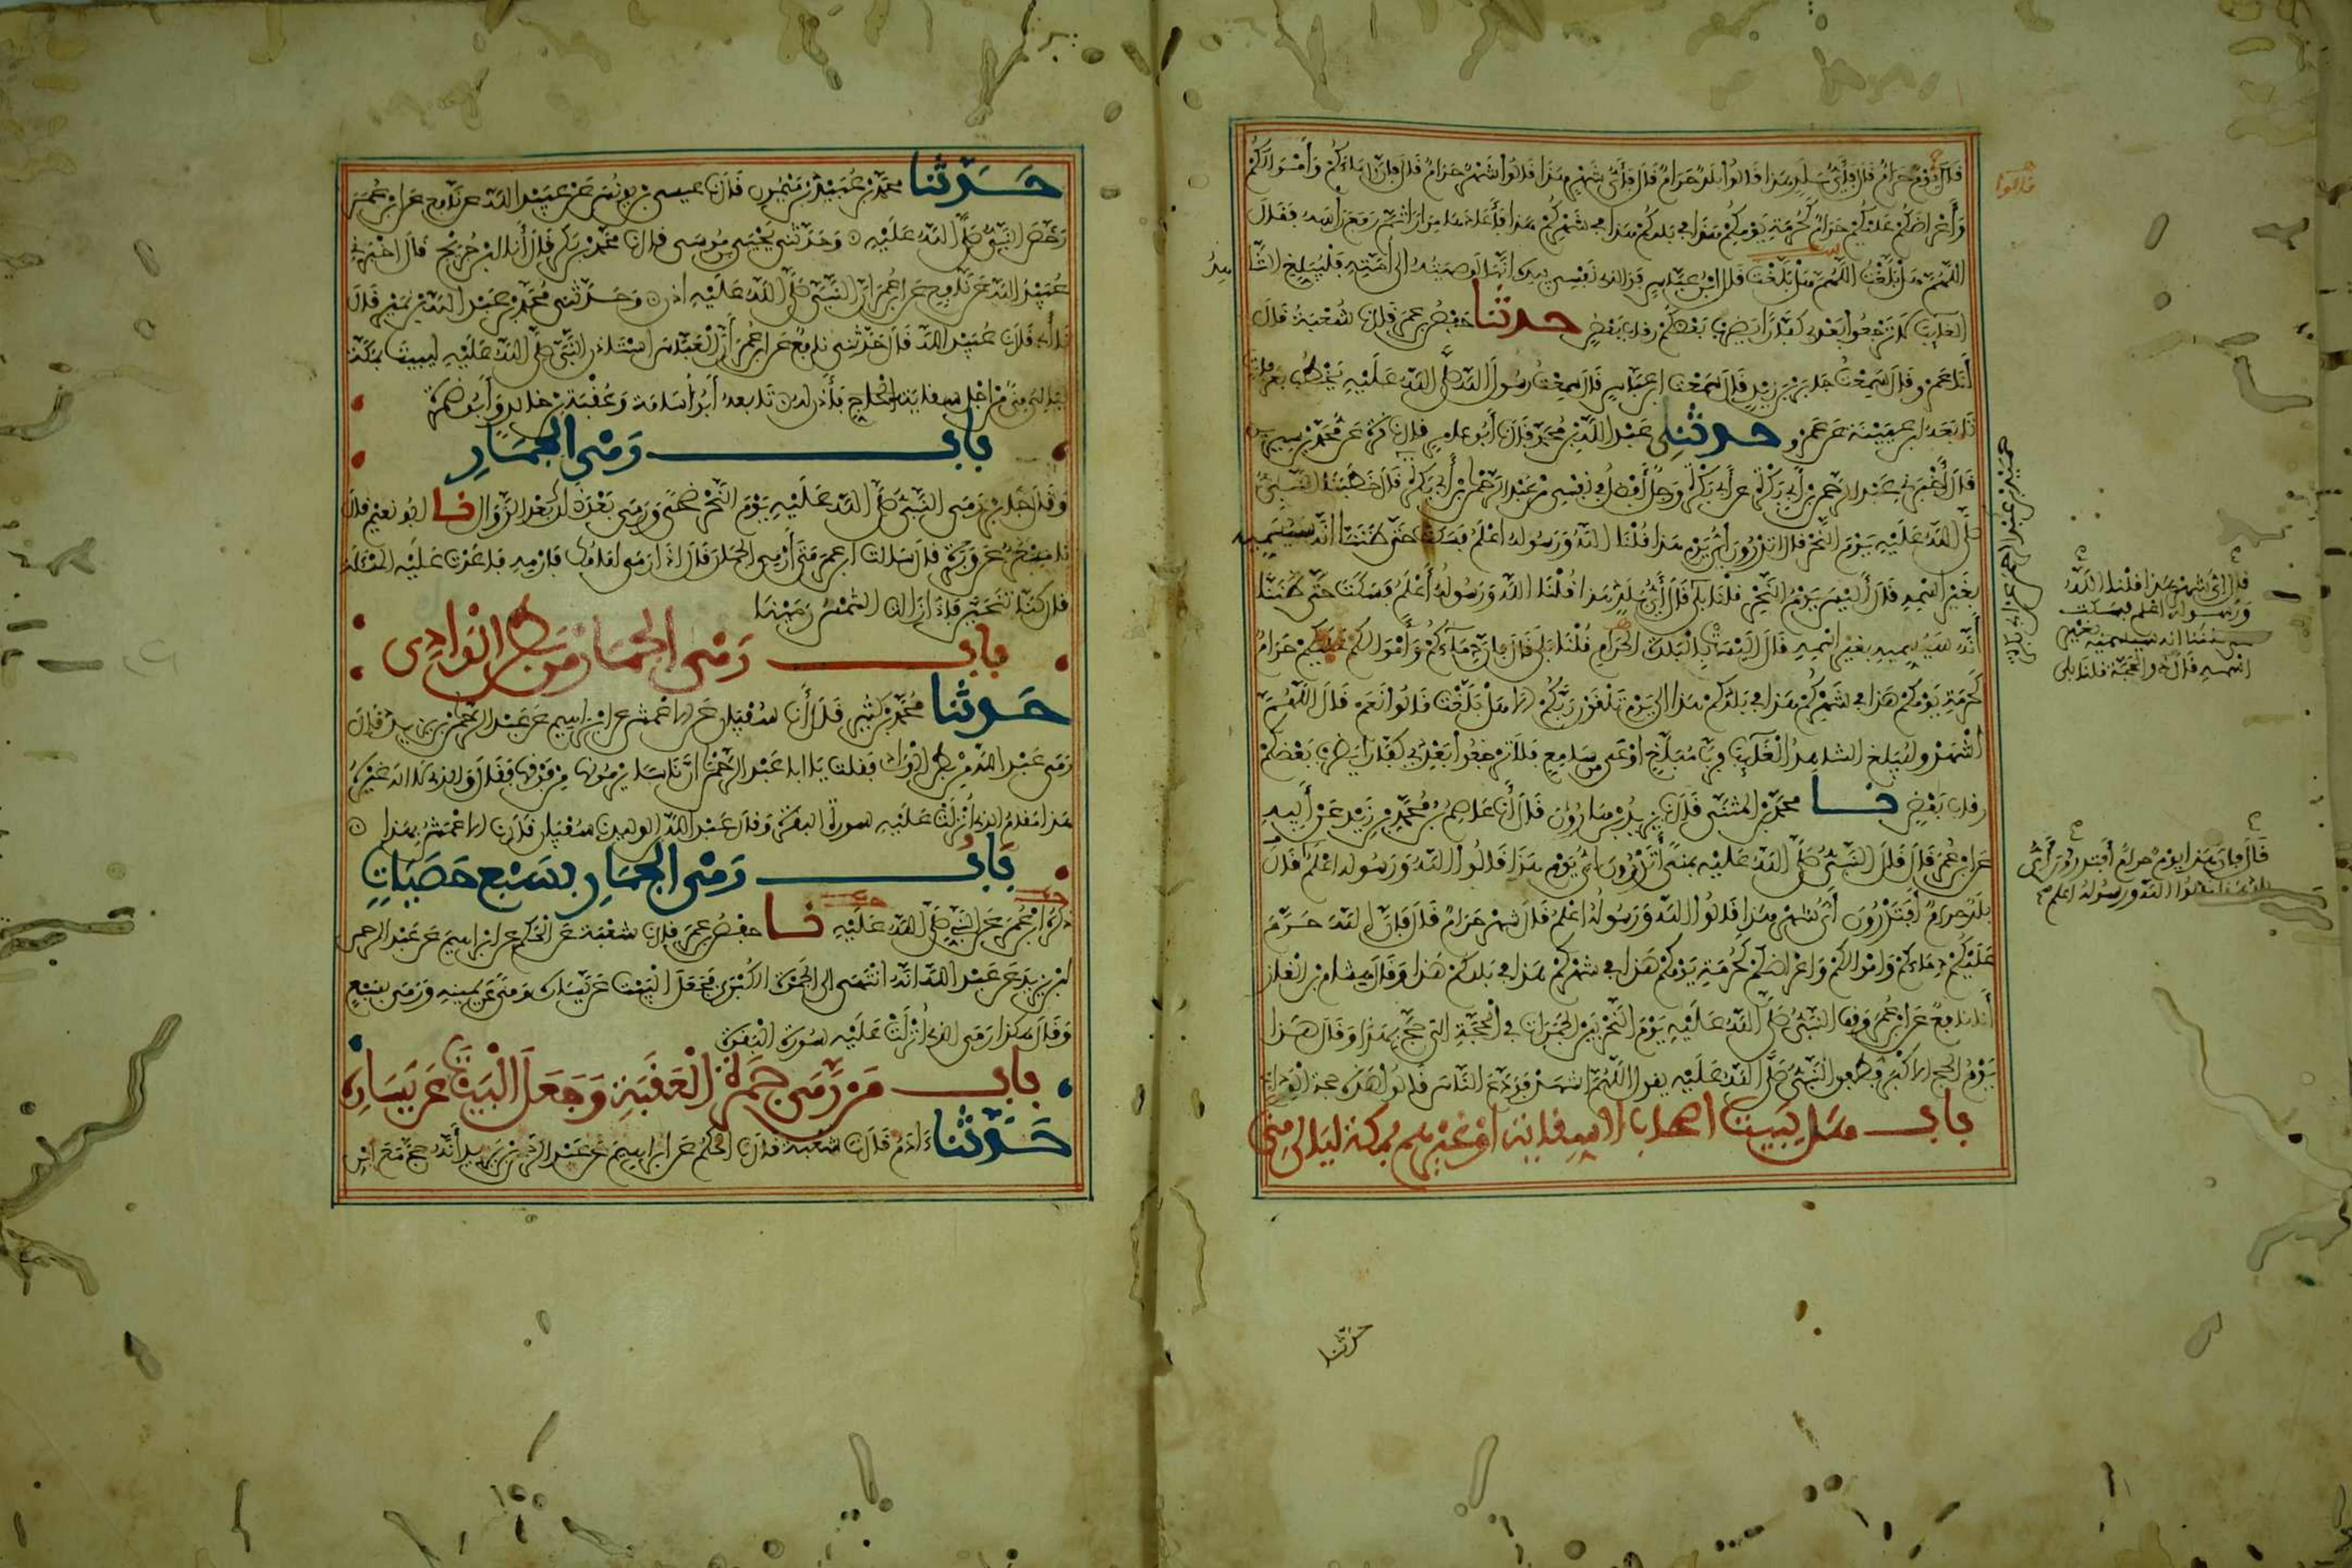 قال يوم حرام قال فأي بلد هذا قالوا بلد حرام قال فأي شهر هذا قالوا شهر حرام قال فإن دماءكم وأموالكم
قالوا
وأعراضكم عليكم حرام كحرمة يومكم هذا في بلدكم هذا في شهركم هذا فأعادها مرارا ثم رفع رأسه فقال
اللهم هل بلغت اللهم هل بلغت قال ابن عباس فوالذي نفسي بيده إنها لوصيته إلى أمته فليبلغ الشاهد
الغايب لا ترجعوا بعدي كفارا يضرب بعضكم رقاب بعض حدثنا حفص بن عمر قال نا شعبة قال
أنا عمرو قال سمعت جابر بن زيد قال سمعت ابن عباس قال سمعت رسول الله صلى الله عليه يخطب بعرفات
تابعه ابن عيينة عن عمرو حدثني عبد الله بن محمد قال نا أبو عامر قال نا قرة عن محمد بن سيرين
قال أخبرني عبد الرحمن بن أبي بكرة عن أبي بكرة ورجل أفضل في نفسي من عبد الرحمن بن أبي بكرة قال خطبنا النبي
حميد بن عبد الرحمن عن أبي بكرة
صلى الله عليه يوم النحر قال أتدرون أي يوم هذا قلنا الله ورسوله أعلم فسكت حتى ظننا أنه سيسميه
بغير اسمه قال أليس يوم النحر قلنا بلى قال أي بلد هذا قلنا الله ورسوله أعلم فسكت حتى ظننا
قال أي شهر هذا قلنا الله
ورسوله أعلم فسكت
حتى ظننا أنه سيسميه بغير
اسمه قال ذو الحجة قلنا بلى
أنه سيسميه بغير اسمه قال أليست بالبلدة الحرام قلنا بلى قال فإن دماءكم وأموالكم عليكم حرام
كحرمة يومكم هذا في شهركم هذا في بلدكم هذا إلى يوم تلقون ربكم ألا هل بلغت قالوا نعم قال اللهم
اشهد وليبلغ الشاهد الغايب فرب مبلغ أوعى من سامع فلا ترجعوا بعدي كفارا يضرب بعضكم
رقاب بعض نا محمد بن المثنى قال نا يزيد بن هارون قال أنا عاصم بن محمد بن زيد عن أبيه
عن ابن عمر قال قال النبي صلى الله عليه بمنى أتدرون أي يوم هذا قالوا الله ورسوله أعلم قال
قال فإن هذا يوم حرام أفتدرون أي
بلد هذا قالوا الله ورسوله أعلم
بلد حرام أفتدرون أي شهر هذا قالوا الله ورسوله أعلم قال شهر حرام قال فإن الله حرم
عليكم دماءكم وأموالكم وأعراضكم كحرمة يومكم هذا في شهركم هذا في بلدكم هذا وقال هشام بن الغاز
أنا نافع عن ابن عمر وقف النبي صلى الله عليه يوم النحر بين الجمرات في الحجة التي حج بهذا وقال هذا
يوم الحج الأكبر فطفق النبي صلى الله عليه يقول اللهم اشهد فودع الناس قالوا هذه حجة الوداع
باب هل يبيت أصحاب السقاية أو غيرهم بمكة ليالي منى
حدثنا
حدثنا محمد بن عبيد بن ميمون قال نا عيسى بن يونس عن عبيد الله عن نافع عن ابن عمر
رخص النبي صلى الله عليه وحدثني يحيى بن موسى قال نا محمد بن بكر قال أنا ابن جريج قال أخبرني
عبيد الله عن نافع عن ابن عمر أن النبي صلى الله عليه أذن وحدثني محمد بن عبد الله بن نمير قال
نا أبي قال نا عبيد الله قال حدثني نافع عن ابن عمر أن العباس استأذن النبي صلى الله عليه ليبيت بمكة
ليالي منى من أجل سقايته فأذن له تابعه أبو أسامة وعقبة بن خالد وأبو ضمرة
باب رمي الجمار
وقال جابر رمى النبي صلى الله عليه يوم النحر ضحى ورمى بعد ذلك بعد الزوال نا أبو نعيم قال
نا مسعر عن وبرة قال سألت ابن عمر متى أرمي الجمار قال إذا رمى إمامك فارمه فأعدت عليه المسئلة
قال كنا نتحين فإذا زالت الشمس رمينا
باب رمي الجمار من بطن الوادي
حدثنا محمد بن كثير قال أنا سفيان عن الأعمش عن إبراهيم عن عبد الرحمن بن يزيد قال
رمى عبد الله من بطن الوادي فقلت يا أبا عبد الرحمن إن ناسا يرمونها من فوقها فقال والذي لا إله غيره
هذا مقام الذي أنزلت عليه سورة البقرة وقال عبد الله بن الوليد نا سفيان قال نا الأعمش بهذا
باب رمي الجمار بسبع حصيات
ذكره ابن عمر عن النبي صلى الله عليه نا حفص بن عمر قال نا شعبة عن الحكم عن إبراهيم عن عبد الرحمن
بن يزيد عن عبد الله أنه انتهى إلى الجمرة الكبرى فجعل البيت عن يساره ومنى عن يمينه ورمى بسبع
وقال هكذا رمى الذي أنزلت عليه سورة البقرة
باب من رمى جمرة العقبة وجعل البيت عن يساره
حدثنا آدم قال نا شعبة قال نا الحكم عن إبراهيم عن عبد الرحمن بن يزيد أنه حج مع ابن